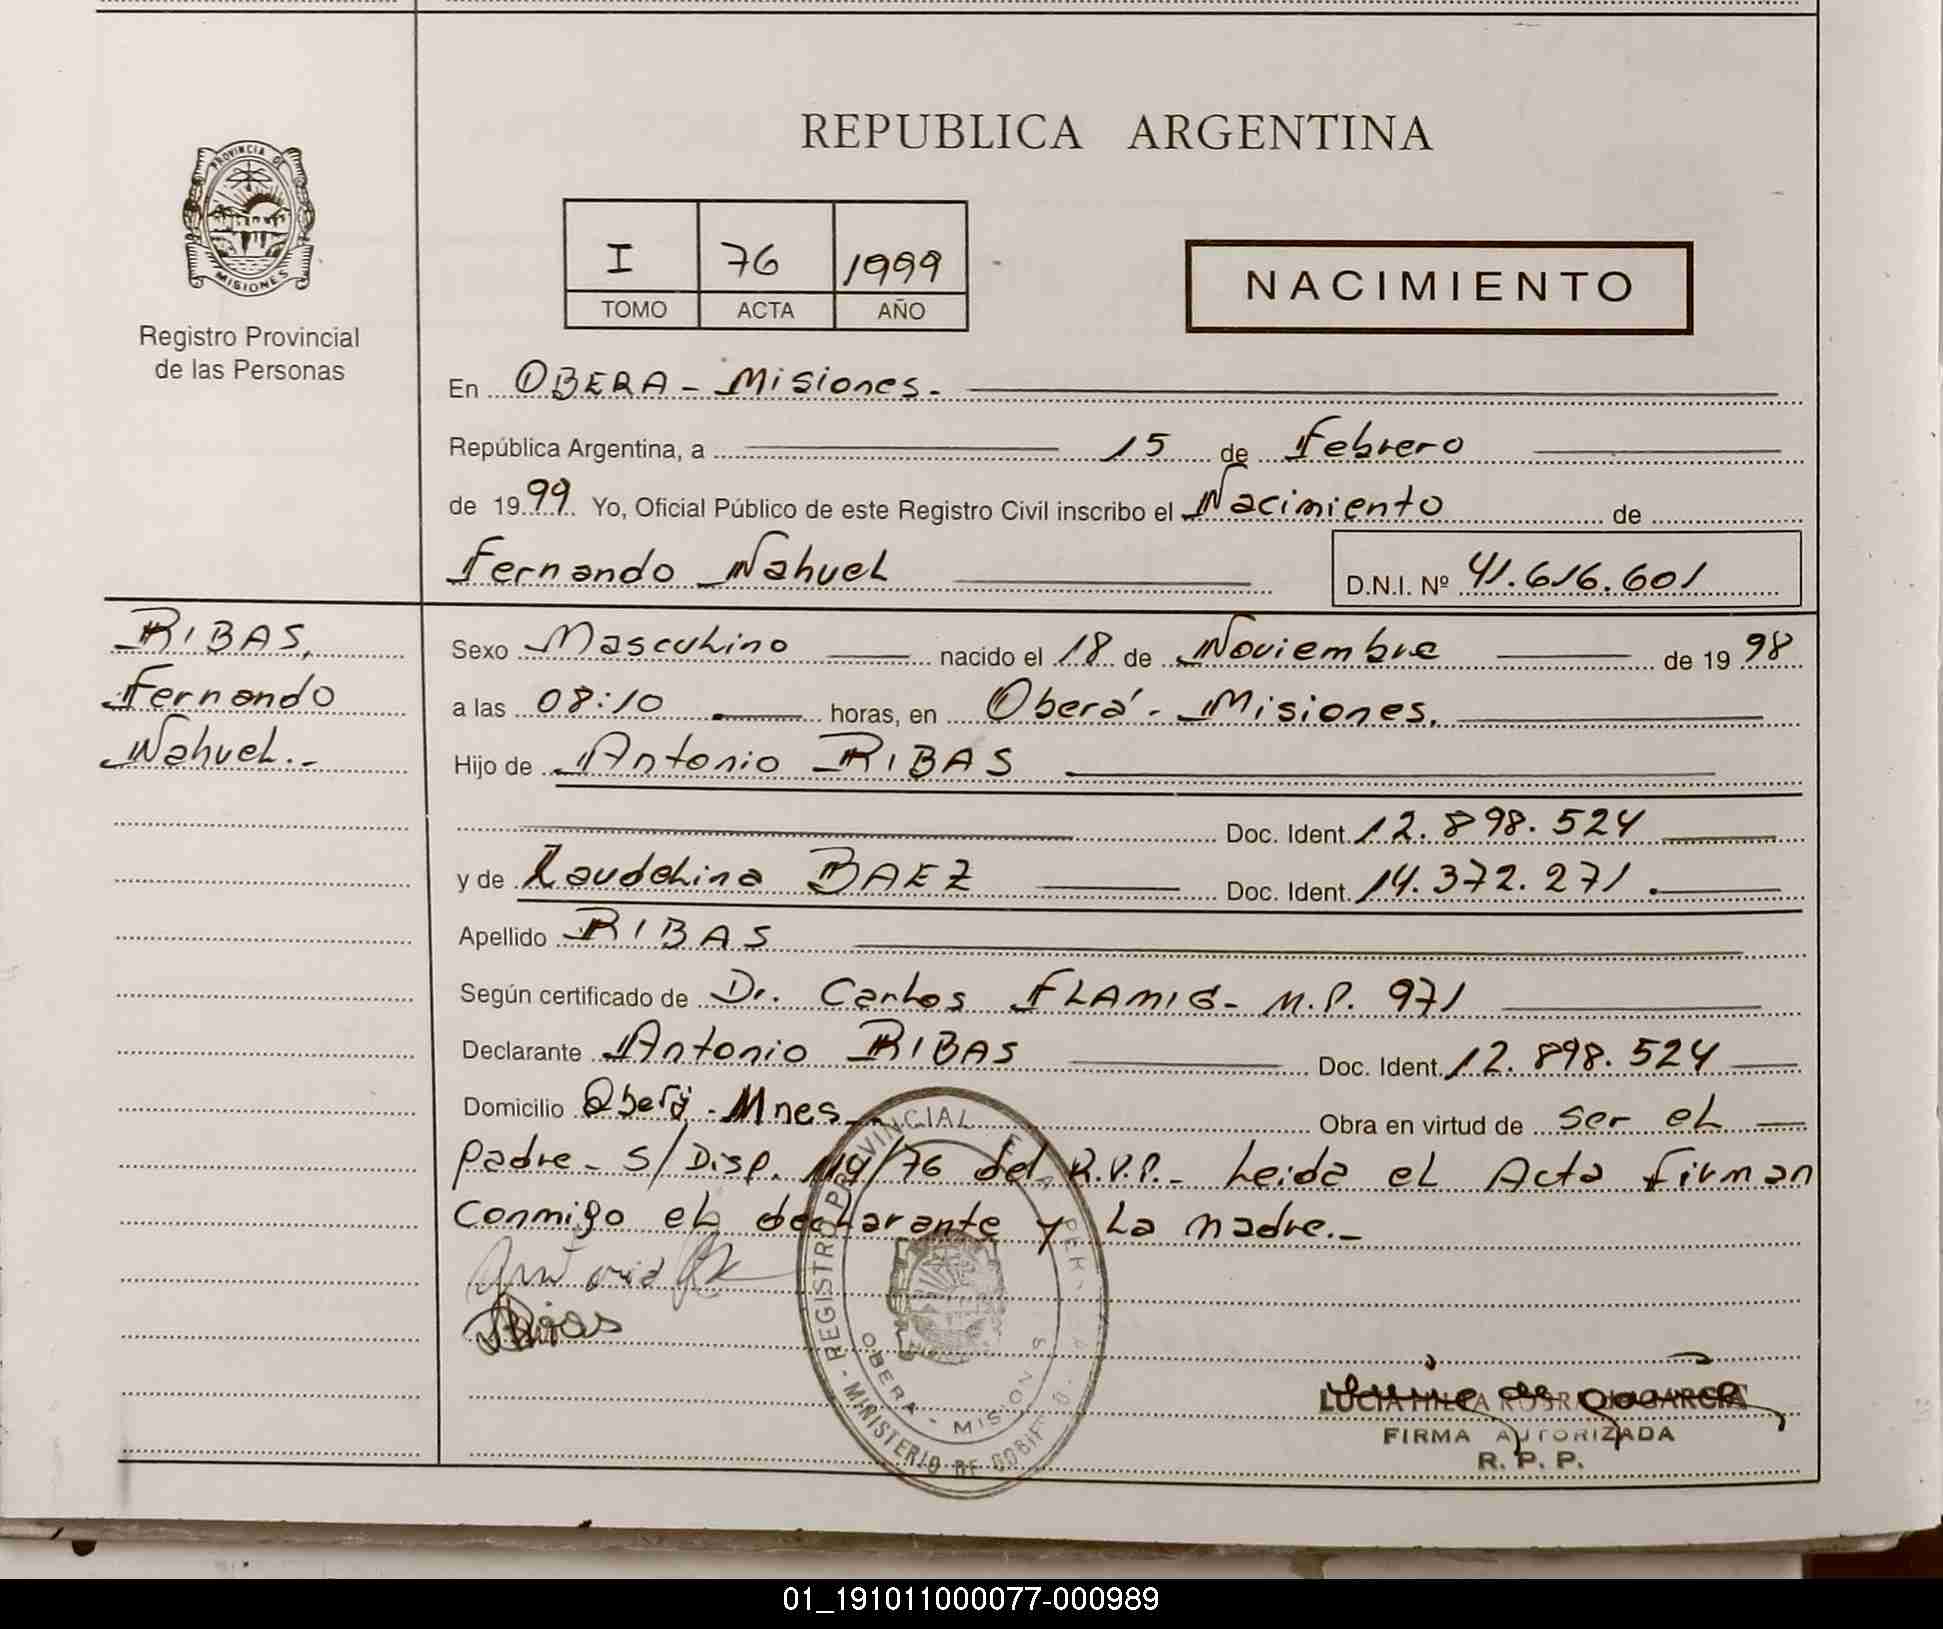 REPUBLICA ARGENTINA
PROVINCIA DE
MISIONES
Registro Provincial
de las Personas
I 76 1999
TOMO ACTA AÑO
NACIMIENTO
En OBERA - Misiones.
República Argentina, a 15 de Febrero
de 1999 Yo, Oficial Público de este Registro Civil inscribo el Nacimiento de
Fernando Nahuel D.N.I. Nº 41.616.601
RIBAS,
Fernando
Nahuel.-
Sexo Masculino nacido el 18 de Noviembre de 1998
a las 08:10 horas, en Oberá - Misiones.
Hijo de Antonio RIBAS
Doc. Ident. 12.898.524
y de Laudelina BAEZ Doc. Ident. 14.372.271.
Apellido RIBAS
Según certificado de Dr. Carlos FLAMIG - M.P. 971
Declarante Antonio RIBAS Doc. Ident. 12.898.524
Domicilio Oberá - Mnes Obra en virtud de ser el
padre - S/Disp. 119/76 del R.P.P.- Leida el Acta firman
conmigo el declarante y la madre.-
REGISTRO PROVINCIAL
OBERA - MISIONES
MINISTERIO DE GOBIERNO
GARCIA
FIRMA AUTORIZADA
R. P. P.
01_191011000077-000989